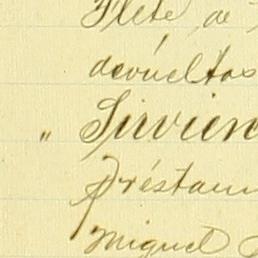 Flete de
devueltos
" Sirvien
Préstam
Miguel